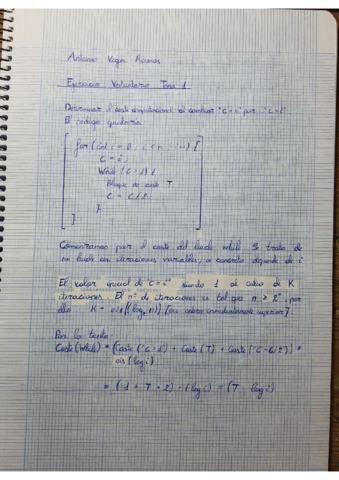 Antonio Vega Ramos
Ejercicio Voluntario Tema 1
Determinar el coste computacional al cambiar "c = i" por "c = i²".
El código quedaría:
for (int i = 0; i < n; i++) {
c = i;
While (c > 1) {
Bloque de coste T
c = c/2;
}
}
Comenzamos por el coste del bucle while. Se trata de
un bucle con iteraciones variables, en concreto depende de i
El valor inicial de c = i siendo 1 al cabo de K
iteraciones. El nº de iteraciones es tal que n ≥ 2ᵏ, por
ello K = (log₂ n) [en entero inmediatamente superior]
Por lo tanto:
Coste (While) = [Coste ("c > 1") + Coste (T) + Coste ("c = c/2")] *
(log i)
= (1 + T + 2) · (log i) = (T log i)